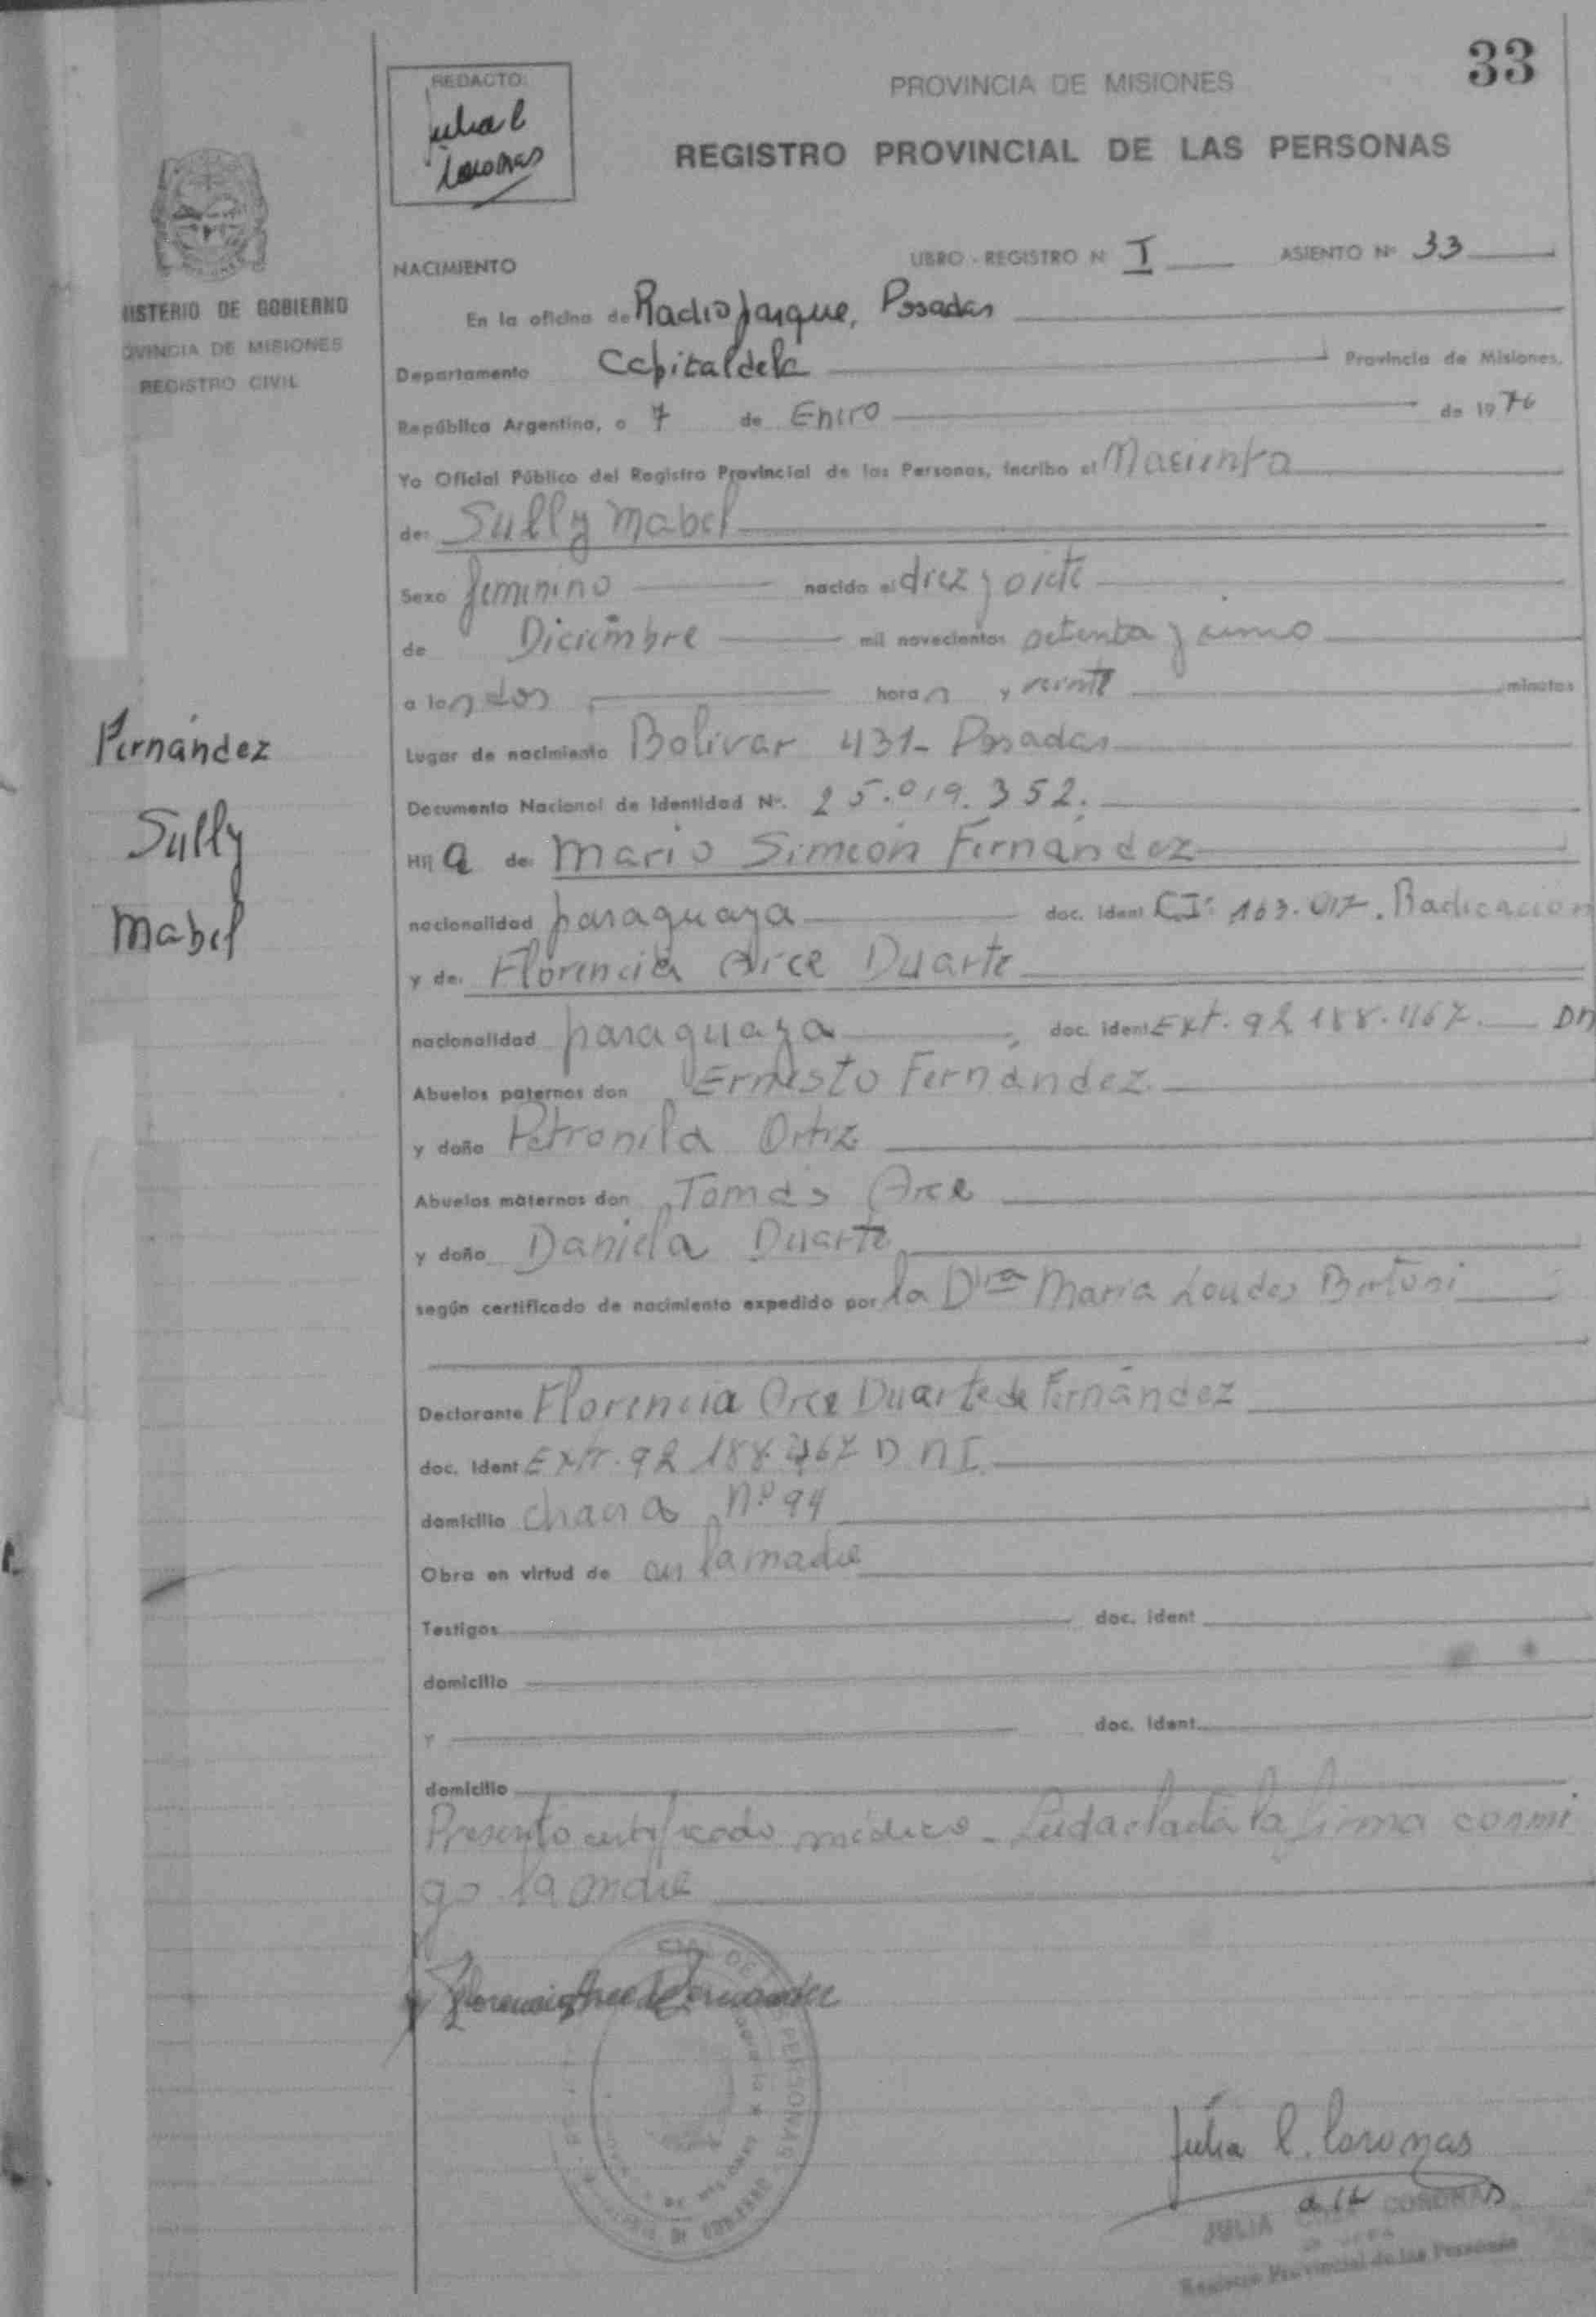 33
REDACTO:
Julia C
Coronas
PROVINCIA DE MISIONES
REGISTRO PROVINCIAL DE LAS PERSONAS
ISTERIO DE GOBIERNO
OVINCIA DE MISIONES
REGISTRO CIVIL
NACIMIENTO LIBRO - REGISTRO N I ASIENTO Nº 33
En la oficina de Radio parque, Posadas
Departamento Capital de la Provincia de Misiones,
República Argentina, a 7 de Enero de 1976
Yo Oficial Público del Registro Provincial de las Personas, incribo el Nacimiento
de: Sully Mabel
Sexo femenino nacida el diez y siete
de Diciembre mil novecientos setenta y cinco
a las dos horas y veinte minutos
Lugar de nacimiento Bolivar 431- Posadas
Documento Nacional de Identidad Nº. 25.019.352.
Hija de: Mario Simeón Fernández
nacionalidad paraguaya doc. ident C.I: 163.017. Radicación
y de: Florencia Arce Duarte
nacionalidad paraguaya, doc. ident Ext. 92 188.467. DN
Abuelos paternos don Ernesto Fernández
y doña Petronila Ortiz
Abuelos maternos don Tomás Arce
y doña Daniela Duarte
según certificado de nacimiento expedido por la Dra María Loudes Bertoni
Declarante Florencia Arce Duarte de Fernández
doc. Ident Extr. 92 188.467 D N I.
domicilio chacra Nº 94
Obra en virtud de ser la madre
Testigos doc. ident
domicilio
y doc. ident.
domicilio
Presento certificado médico - Leida el acta la firma conmi
go la madre
Florencia Arce de Fernandez
Julia C. Coronas
JULIA CORONAS
Registro Provincial de las Personas
Fernández
Sully
Mabel